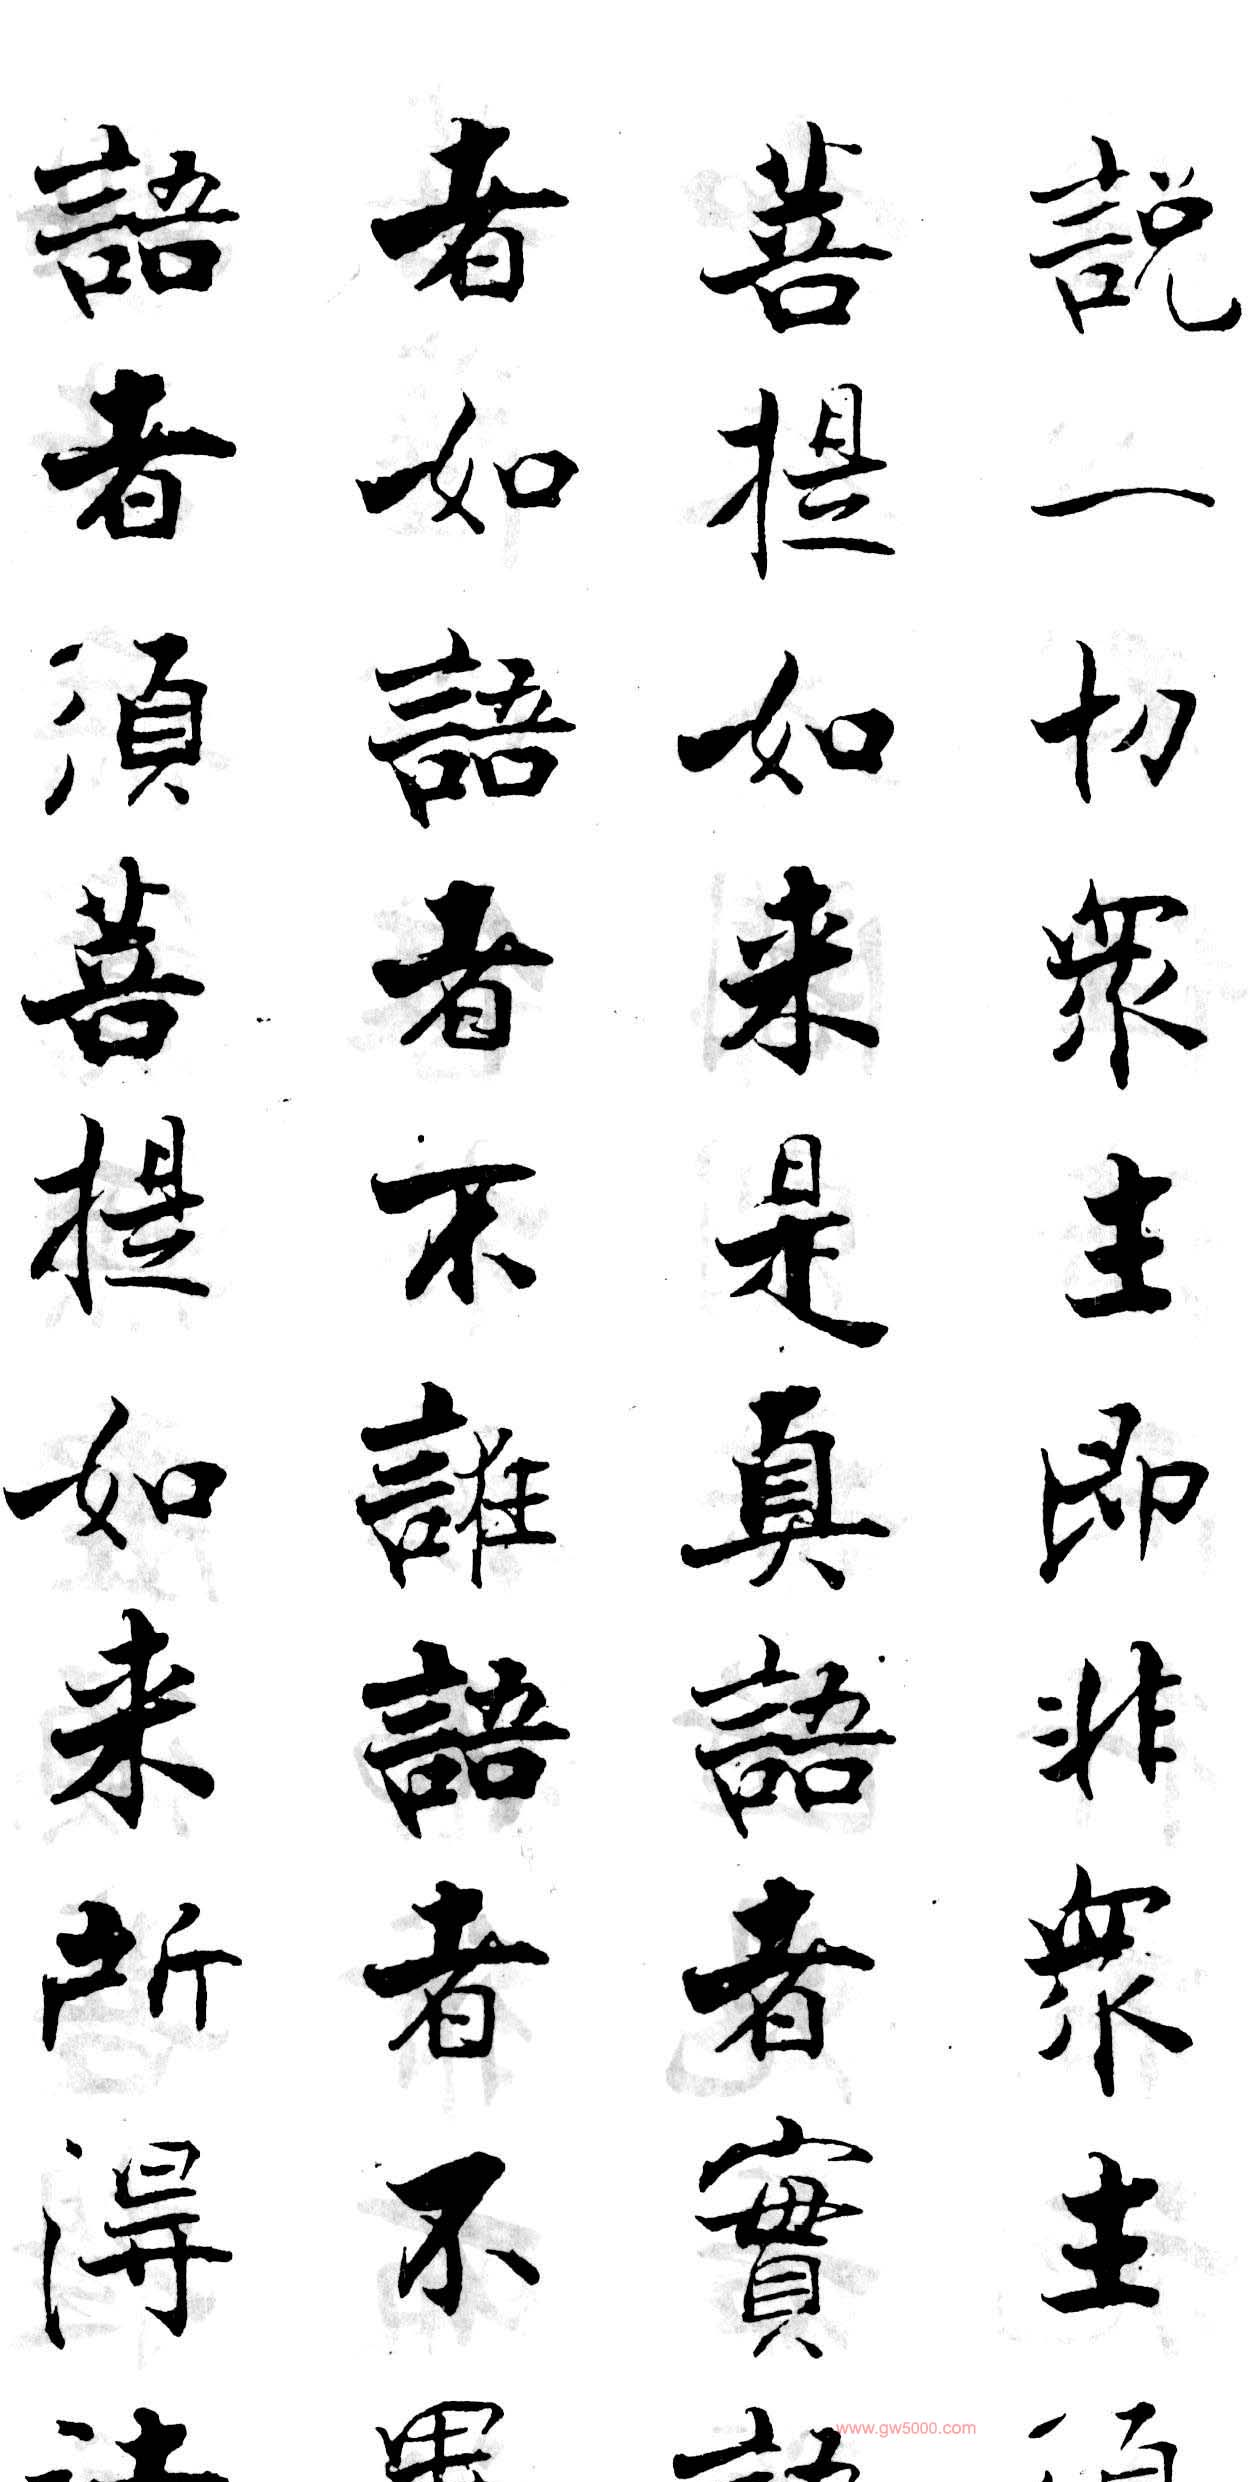 說一切眾生即非眾生須
菩提如来是真語者實語
者如語者不誰語者不異
語者須菩提如来所得法
www.gw5000.com